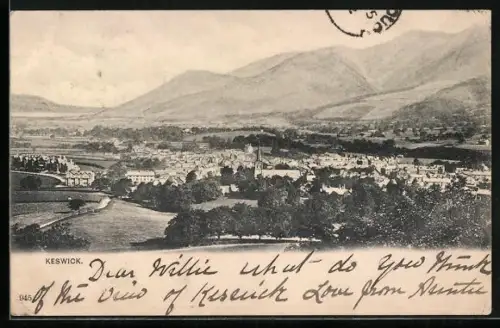 KESWICK.
Dear Willie what do you think
945
of the view of Keswick Love from Auntie